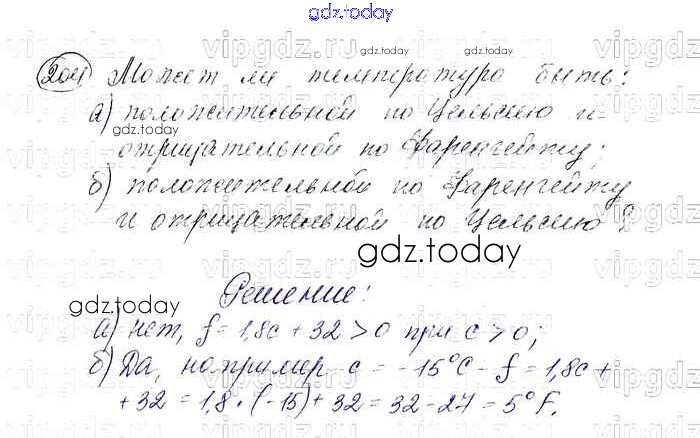 gdz.today
204 Может ли температура быть:
а) положительной по Цельсию и
отрицательной по Фаренгейту;
б) положительной по Фаренгейту
и отрицательной по Цельсию?
gdz.today
gdz.today
gdz.today
gdz.today
Решение:
а) нет, f = 1,8c + 32 > 0 при c > 0;
б) Да, например c = -15°C - f = 1,8c +
+ 32 = 1,8 · (-15) + 32 = 32 - 27 = 5°F.
vipgdz.ru